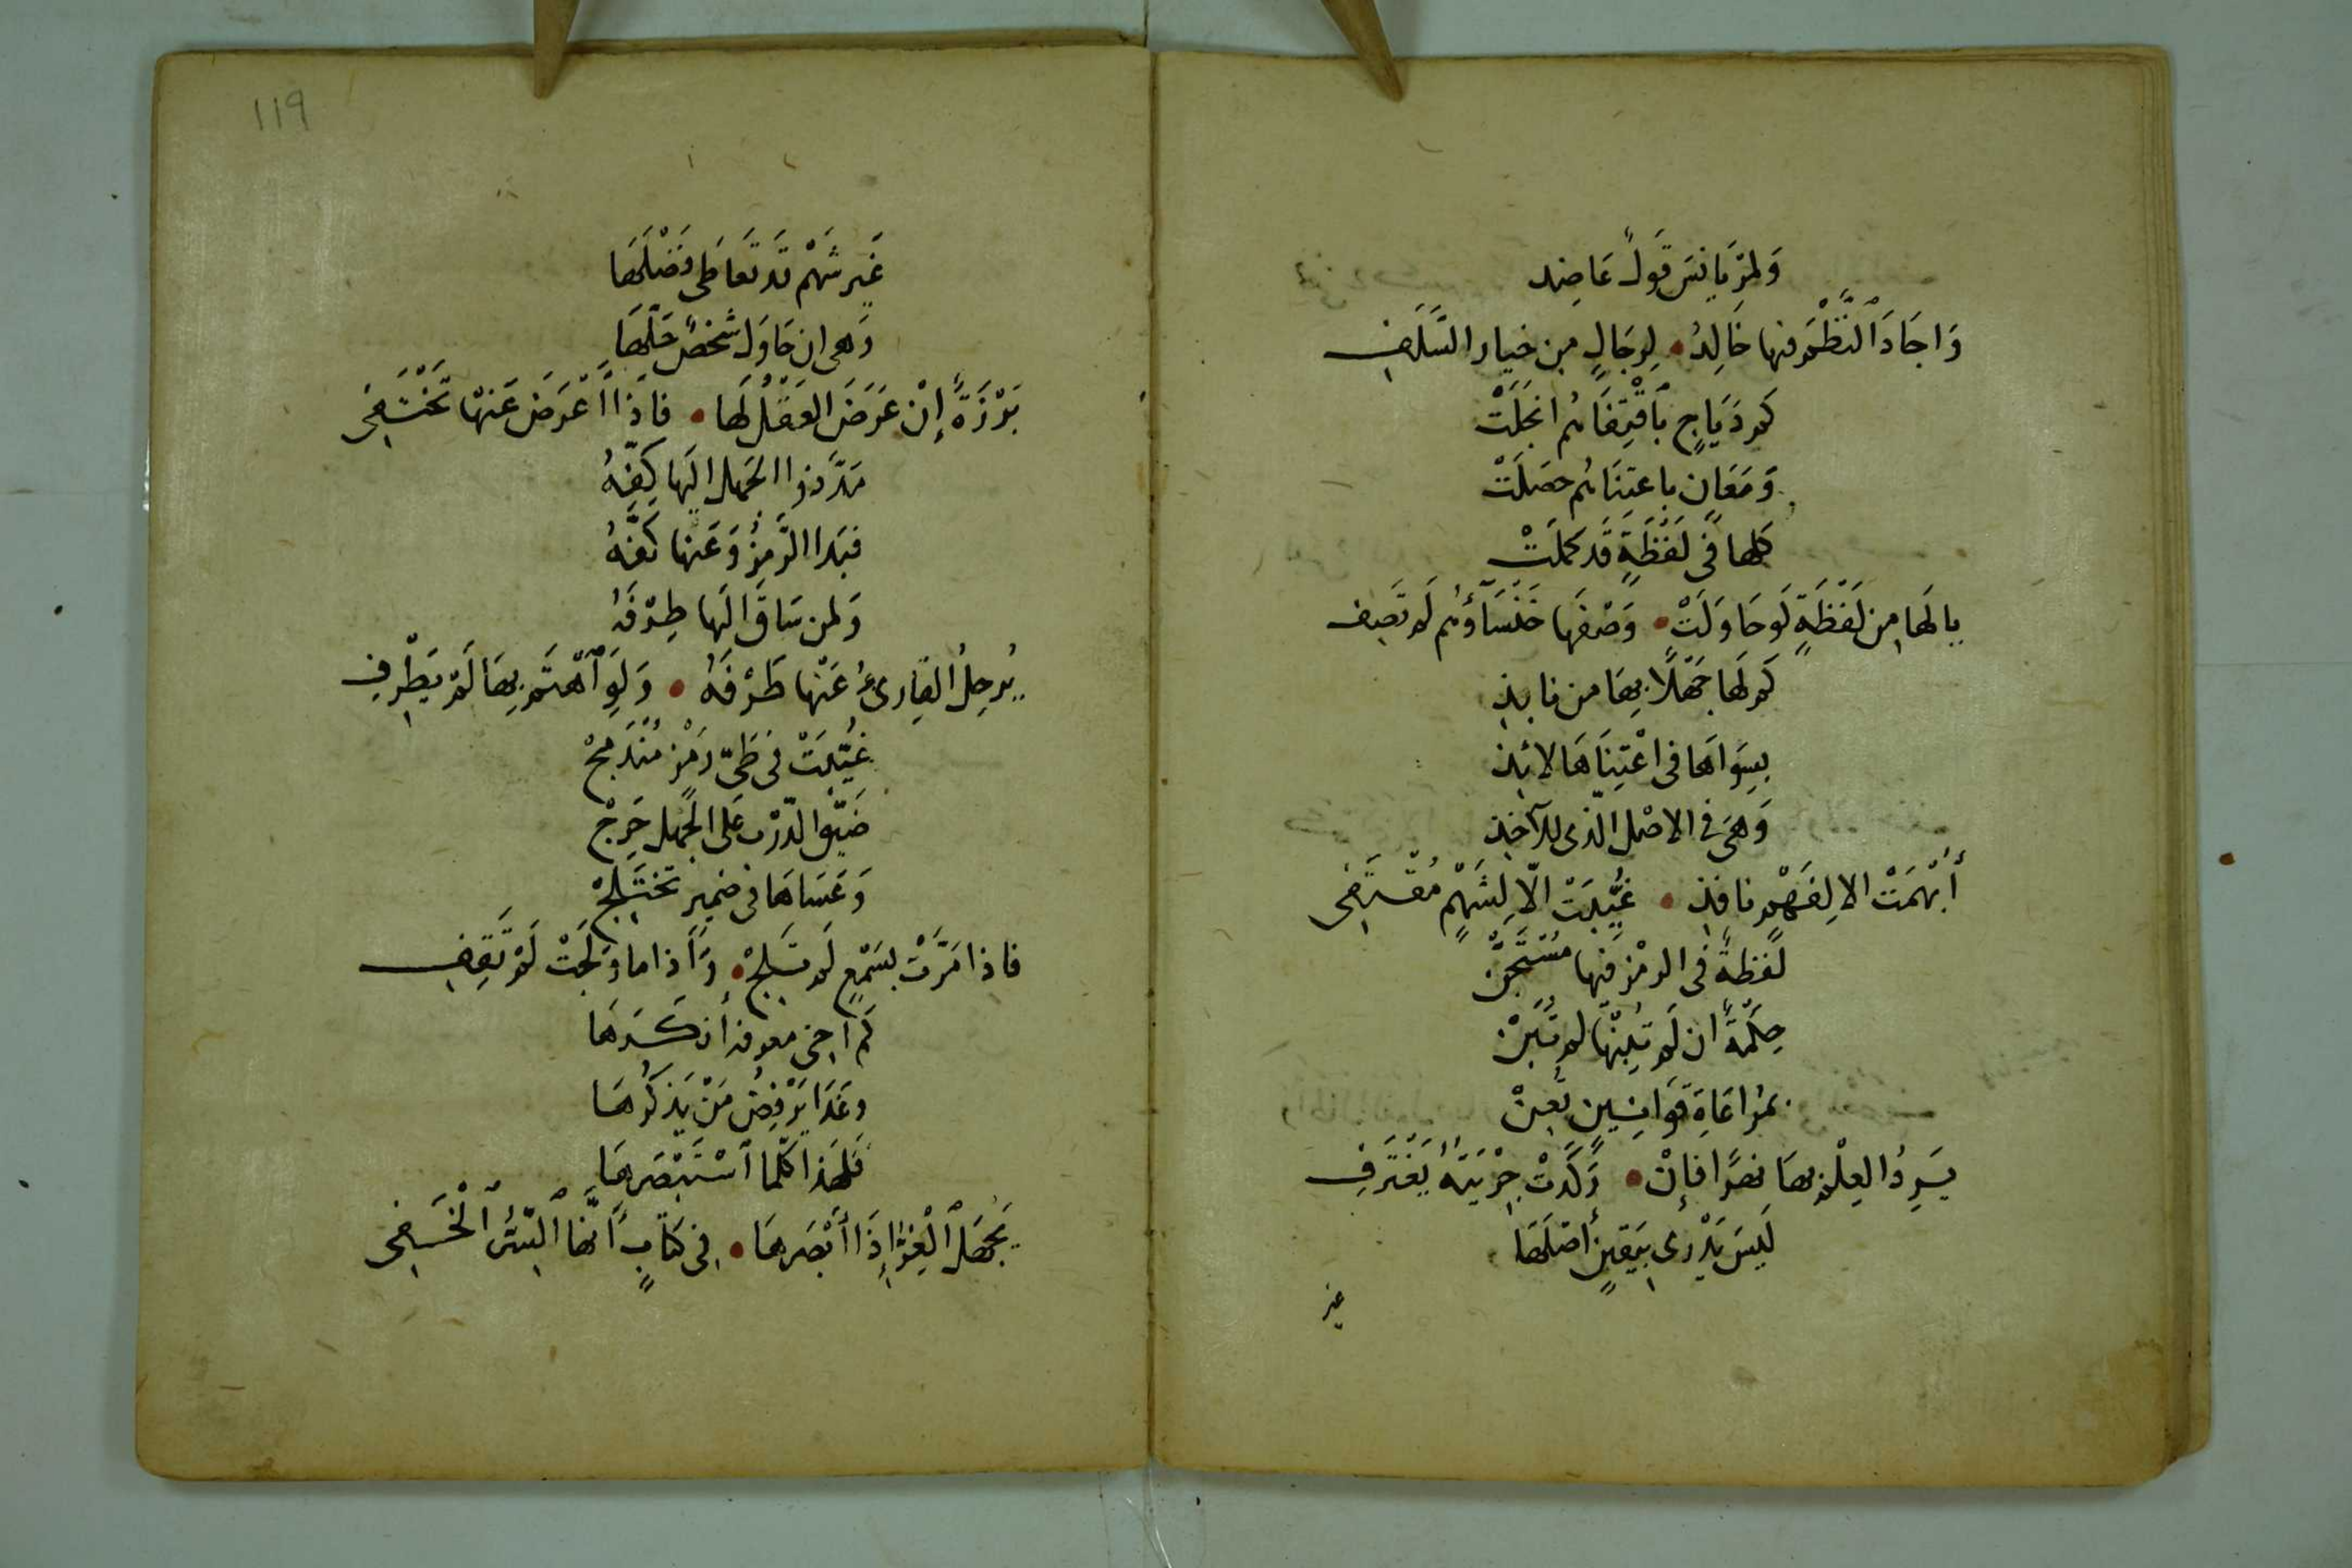 وَلِمَرْيَانِسَ قَولٌ عَاضِد
وَاجَادَ ٱلنَّظْمَ فيها خَالِدُ • لِرِجَالٍ مِن خيار السَّلَفِ
كم دَيَاجٍ بٱقْتِفَائهم انجَلَتْ
وَمَعَانٍ باعتنَائهم حصَلَتْ
كلها فى لَفْظَةٍ قَد كملَتْ
يالَها مِن لَفْظَةٍ لَو حَاوَلَتْ • وَصْفَها خَنْسَآؤُهُم لَم تَصِف
كَم لَها جَهْلًا بِهَا من نابِذِ
بِسِوَاهَا فى اعْتِنَاهَا لائِذِ
وَهىَ فى الاصْل الَّذى للآخِذِ
أُبْهِمَتْ الا لِفَهْمٍ نافِذِ • غُيِّبَتْ الّا لِشَهْمٍ مُقْتَفِى
لَفظةٌ فى الرمْز فيها مُسْتَجَنْ
حِكْمَةٌ ان لَم تُبِنْهَا لم تَبِنْ
بمُراعَاةِ قَوَانِينٍ تُعِنْ
يَرِدُ العِلْمُ بهَا نَصًّا فإِنْ • رَكَدَتْ جِرْيَتُهُ يَغْتَرَفِ
لَيسَ يَدْرِى بيَقينٍ أصلَهَا
غير
119
غَير شَهْمٍ قَد تَعَاطَى فَضْلَهَا
وَهى ان حَاوَلَ شَخصٌ حَلَّهَا
بَرْزَةٌ إِنْ عَرَضَ العَقْلُ لَها • فاذا أَعْرَضَ عَنْهَا تَخْتَفِى
مَدَّ ذو الجَهل اليَها كَفَّهُ
فبَدا الرَّمزُ وَعَنها كَفَّهُ
وَلمن سَاقَ الَيها طِرْفَهُ
يُرحِلُ القَارىءُ عَنْها طَرْفَهُ • وَلَوِ ٱهْتَمَّ بِهَا لَمْ يَطْرِفِ
غُيِّبَتْ فى طَىّ رَمْزٍ مُنْدَمِجْ
ضَيّق الدّرْبِ عَلى الجَهل حَرِجْ
وَعَسَاهَا فى ضمِيرٍ تَختَلِجْ
فاذا مَرَّتْ بسَمْعٍ لَم تَلِجْ • وَاذا ما وَلَجَتْ لَمْ تَقِفِ
كَم اخى معرفة أنكَرَهَا
وغَدَا يَرْفِضُ مَنْ يَذكُرُهَا
فَلِهَذا كلّما ٱسْتَبْصَرهَا
يَجْهَل ٱلْغِرُّ إِذَا أَبْصَرهَا • فِى كتَابٍ أَنَّهَا ٱلسِّرُّ ٱلْخَفِى